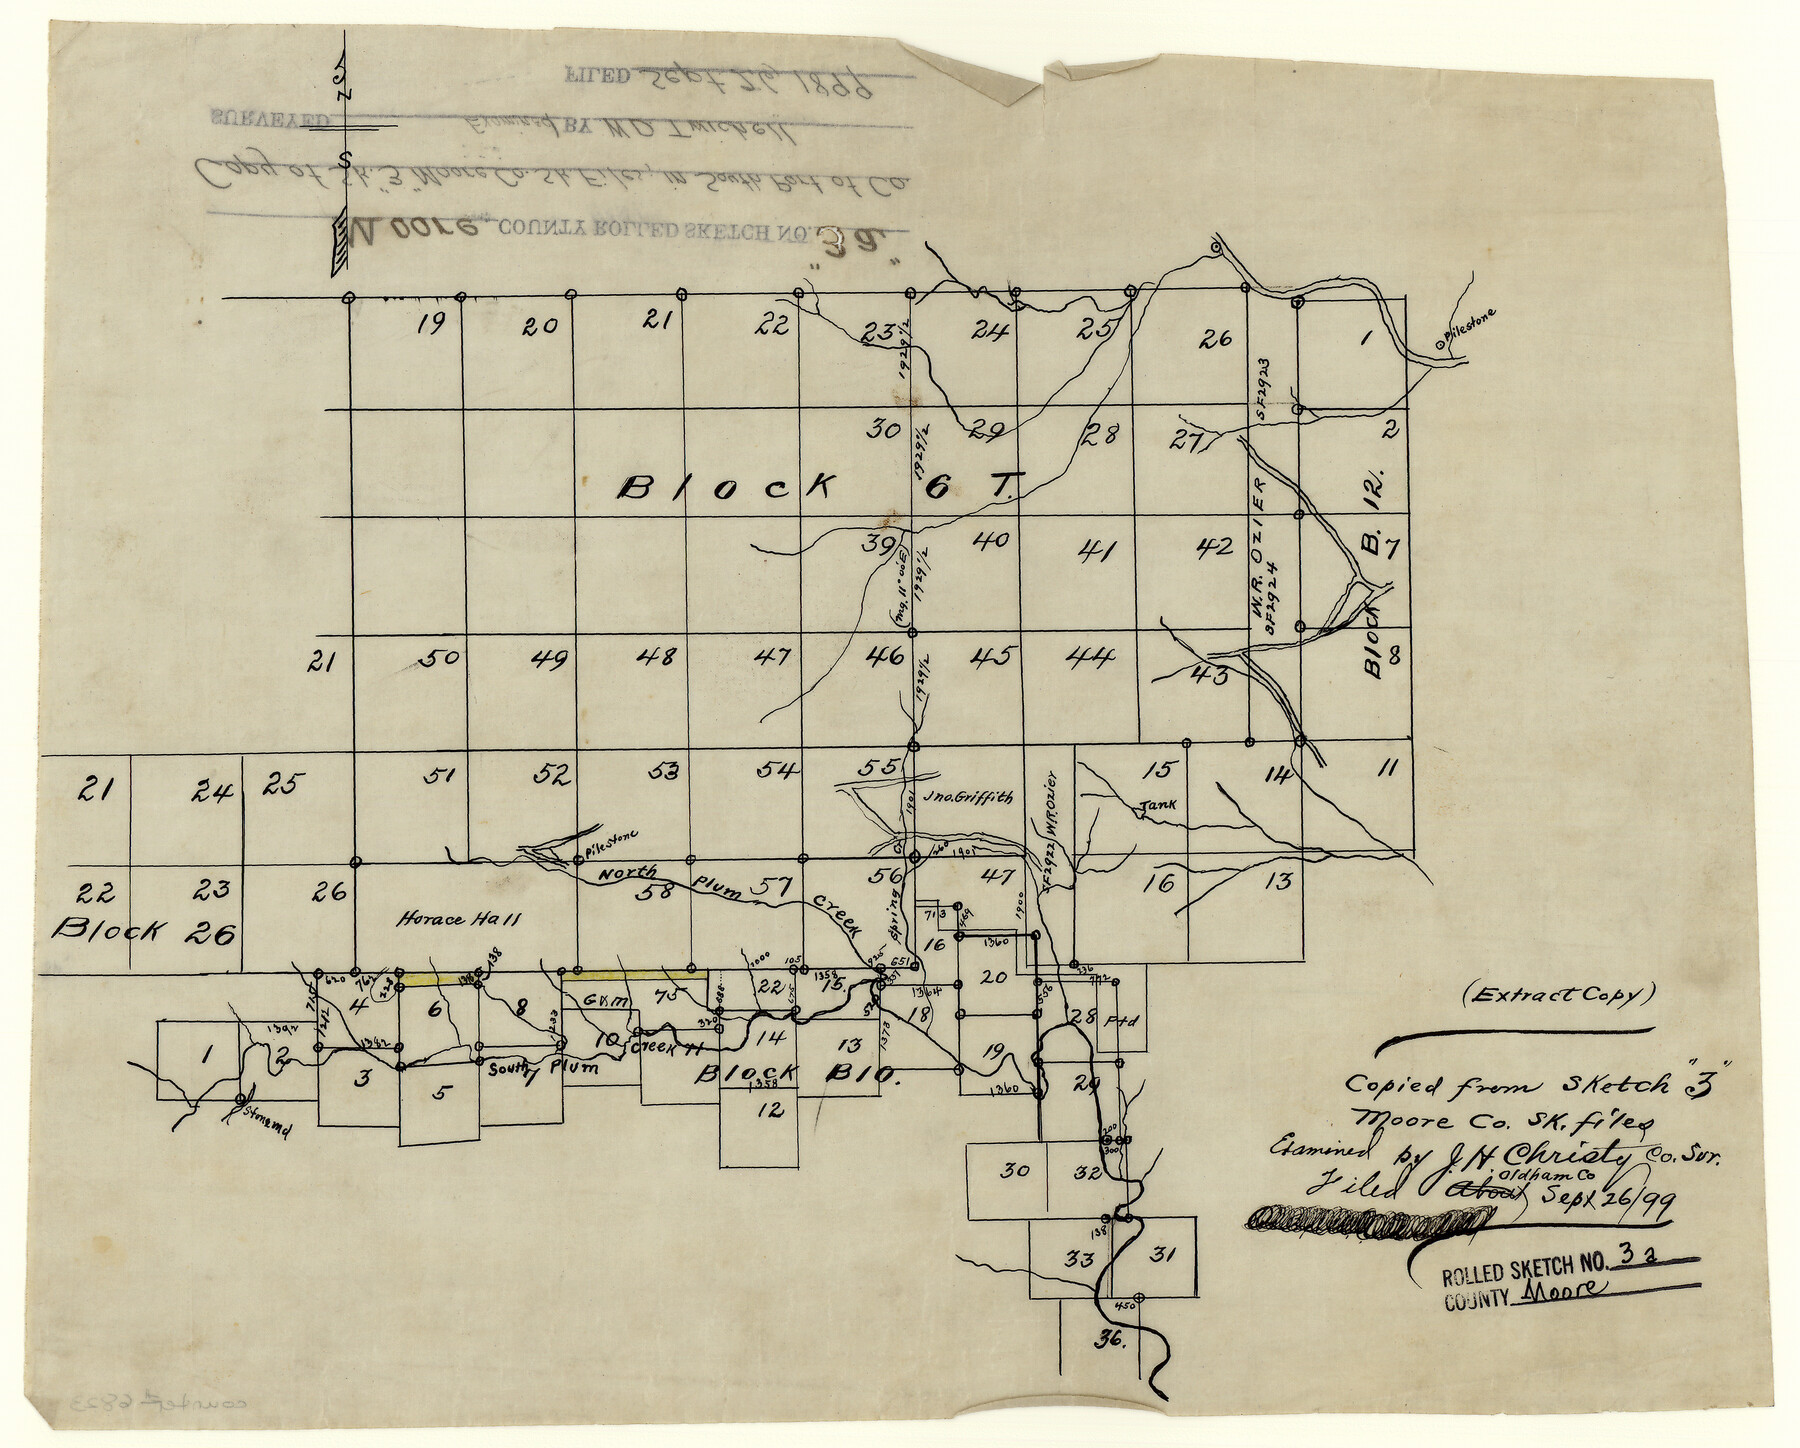 FILED Sept 26, 1899
SURVEYED Examined BY W.D. Twichell
Copy of Sk. "3" Moore Co. Sk. Files, in South Part of Co.
Moore COUNTY ROLLED SKETCH NO. "3a."
N
S
19 20 21 22 23 24 25 26 1
1929 1/2
SF2923
Pilestone
30 29 28 27 2
1929 1/2
Block 6 T.
W.R. OZIER
SF2924
Block B. 12.
39 40 41 42 7
1929 1/2
21 50 49 48 47 46 45 44 43 8
1929 1/2
21 24 25 51 52 53 54 55 15 14 11
Jno. Griffith
1901
SF2922 W.R. Ozier
Tank
Pilestone
22 23 26 58 57 56 47 16 13
North Plum Creek
Spring
1901
1900
Block 26
Horace Hall
713
16
1360
620 762 228 138 138
1000 105 1358 651
236 772
4 6 8 GV.m 75 22 15. 1364 20
18 28 Ptd
1 1392 2 1382 10 14 13 19
1212 233 320 1373
3 5 South Plum Creek
Block B10.
1358
12
1360
29
Stone md
200
300
30 32
138
33 31
450
36.
(Extract Copy)
Copied from Sketch "3"
Moore Co. SK. files
Examined by J H Christy Co. Sur.
Oldham Co
Filed About Sept 26/99
ROLLED SKETCH NO. 3a
COUNTY Moore
counter# 6823